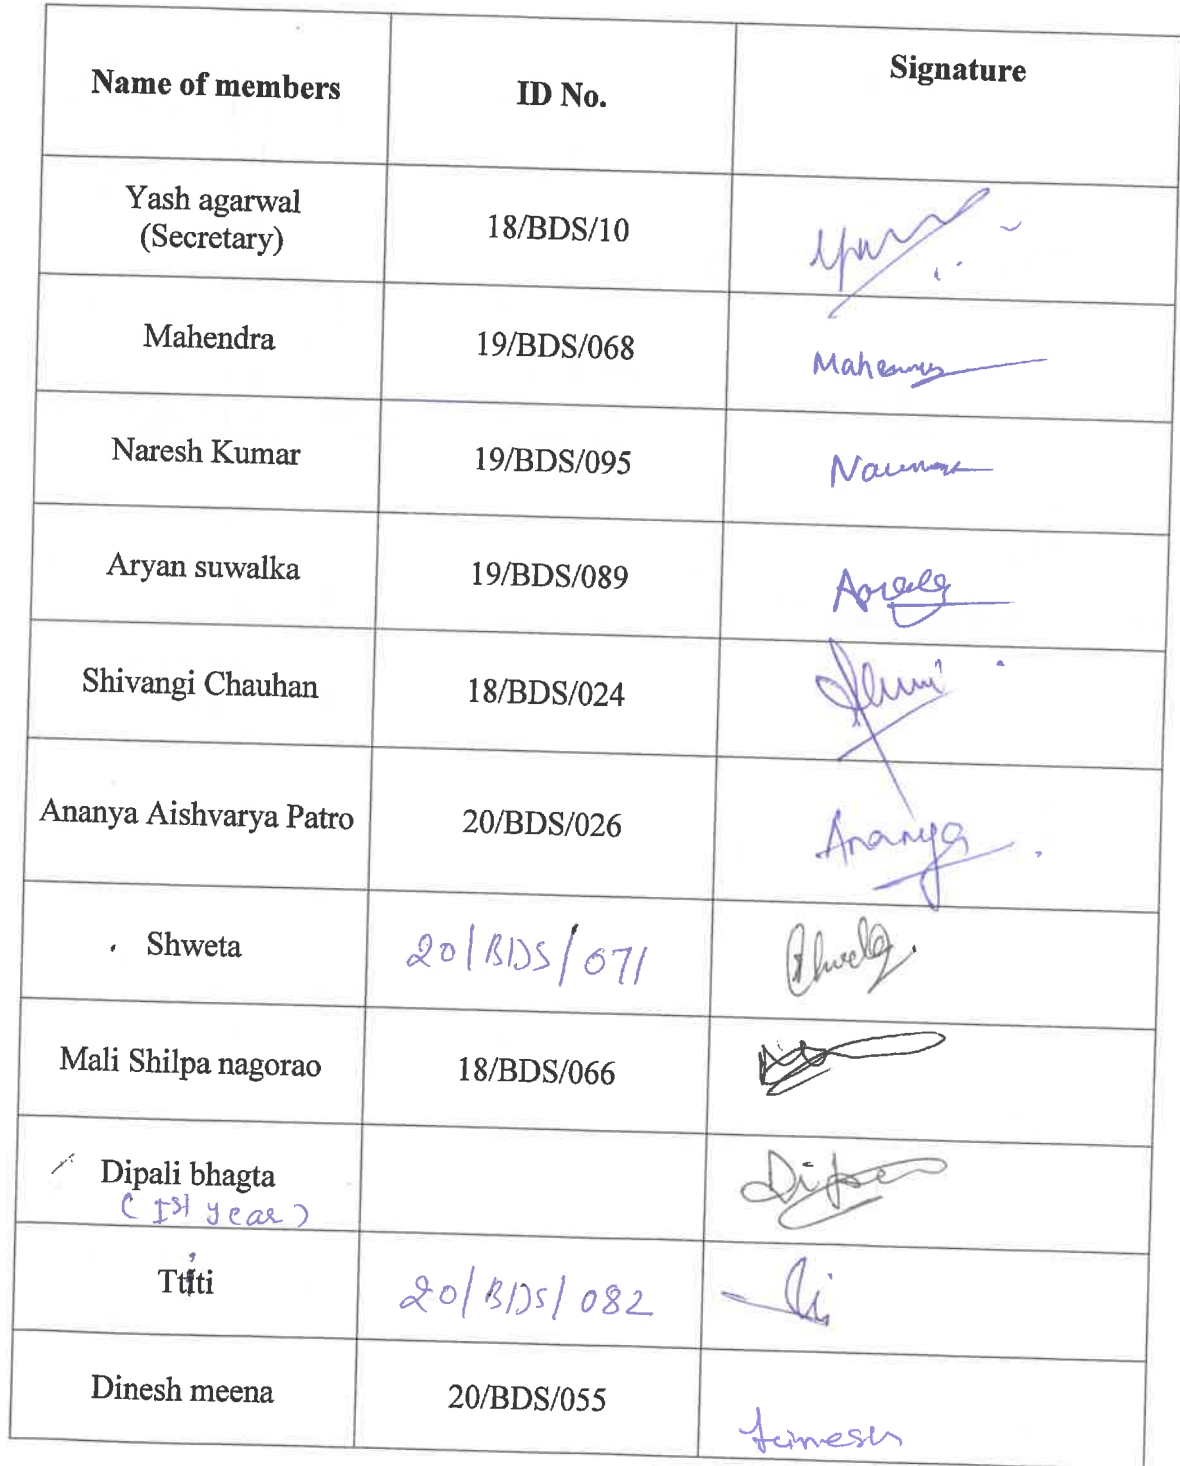 Name of members ID No. Signature
Yash agarwal
(Secretary) 18/BDS/10
Mahendra 19/BDS/068
Naresh Kumar 19/BDS/095
Aryan suwalka 19/BDS/089
Shivangi Chauhan 18/BDS/024
Ananya Aishvarya Patro 20/BDS/026 Ananya
Shweta 20/BDS/071
Mali Shilpa nagorao 18/BDS/066
Dipali bhagta
(Ist year)
20/BDS/082
Dinesh meena 20/BDS/055